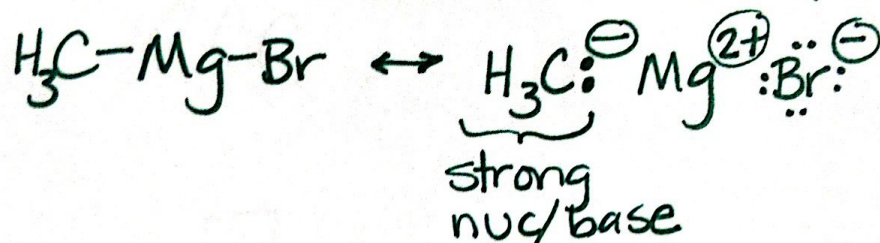 H₃C–Mg–Br ↔ H₃C:⊖ Mg²⁺ :Br:⊖
strong
nuc/base